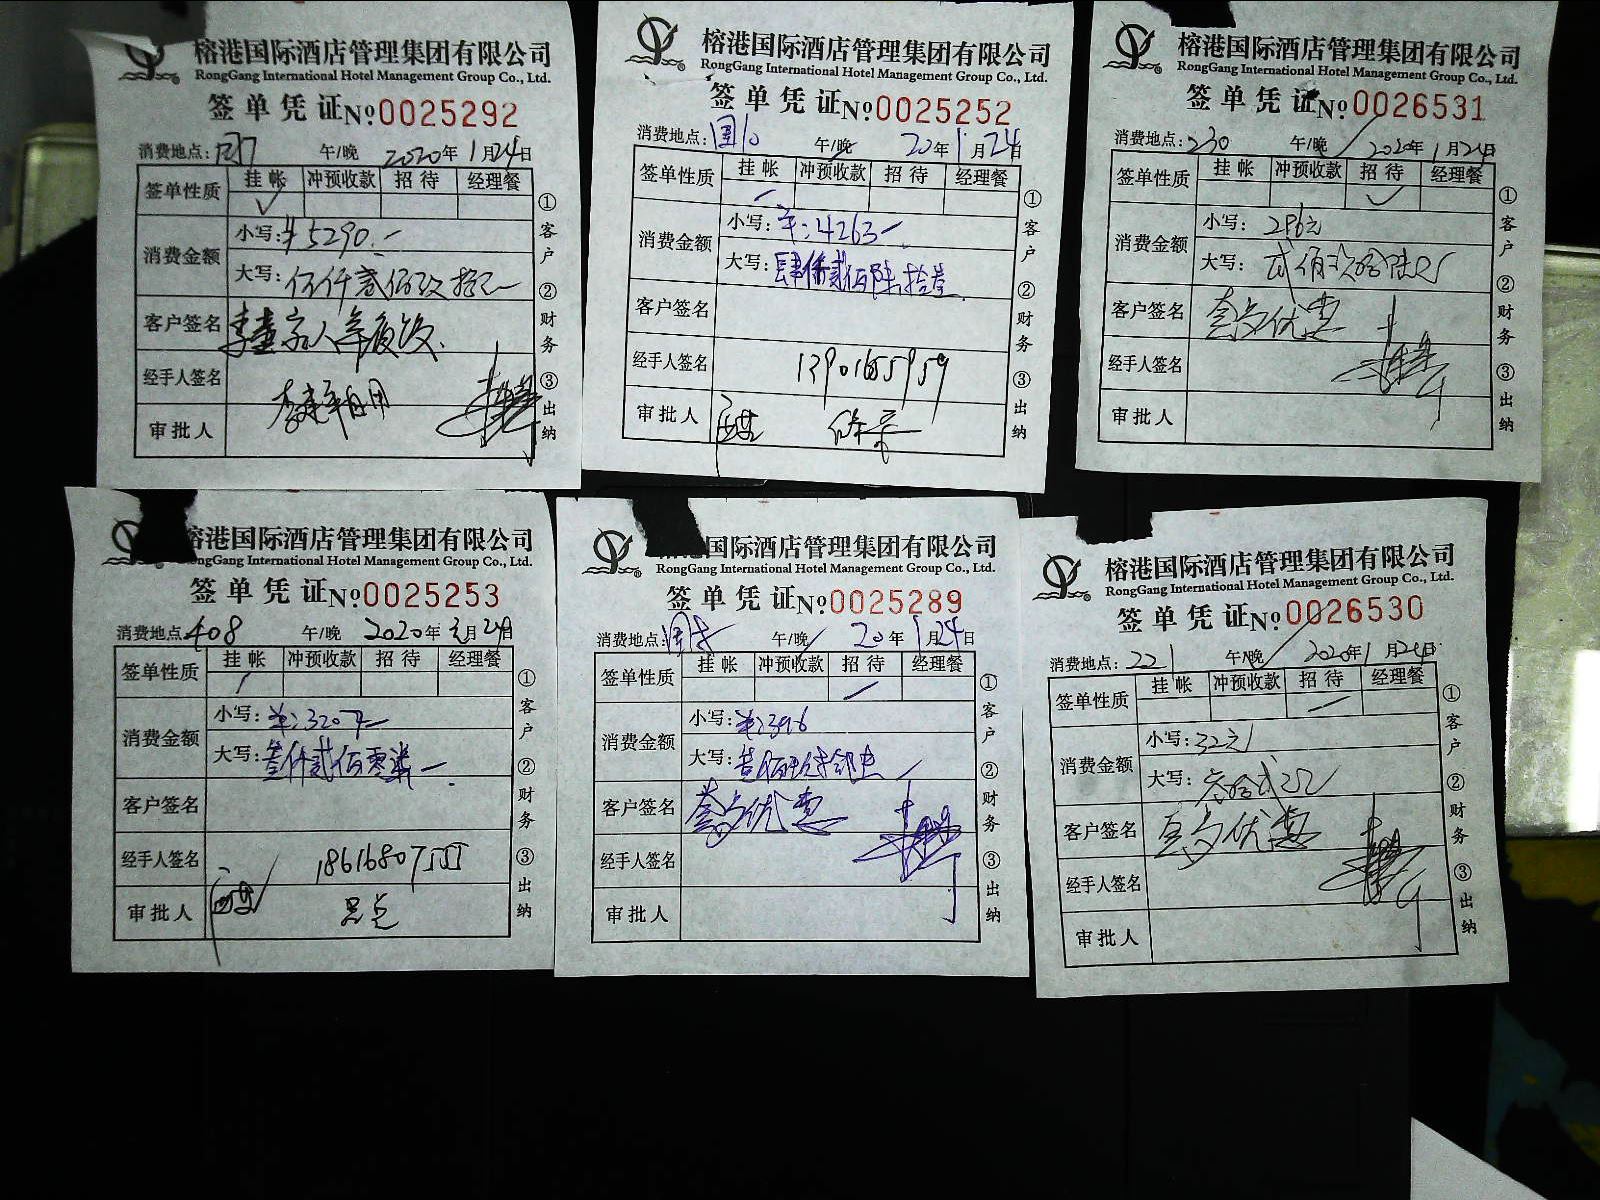 榕港国际酒店管理集团有限公司
RongGang International Hotel Management Group Co., Ltd.
签单凭证 №0025292
消费地点: 午/晚 2020年1月24日
签单性质 挂帐 冲预收款 招待 经理餐
✓
消费金额 小写:¥5290.-
大写:伍仟贰佰玖拾元
客户签名
经手人签名
审批人
①客户 ②财务 ③出纳
榕港国际酒店管理集团有限公司
RongGang International Hotel Management Group Co., Ltd.
签单凭证 №0025252
消费地点: 午/晚 20年1月24日
签单性质 挂帐 冲预收款 招待 经理餐
消费金额 小写:¥:4263-
大写:肆仟贰佰陆拾叁
客户签名
经手人签名
审批人 徐
①客户 ②财务 ③出纳
榕港国际酒店管理集团有限公司
RongGang International Hotel Management Group Co., Ltd.
签单凭证 №0026531
消费地点:230 午/晚 2020年1月24日
签单性质 挂帐 冲预收款 招待 经理餐
✓
消费金额 小写:296元
大写:贰佰玖拾陆元
客户签名 优惠
经手人签名
审批人
①客户 ②财务 ③出纳
榕港国际酒店管理集团有限公司
RongGang International Hotel Management Group Co., Ltd.
签单凭证 №0025253
消费地点:408 午/晚 2020年 月24日
签单性质 挂帐 冲预收款 招待 经理餐
消费金额 小写:¥:3207-
大写:叁仟贰佰零柒
客户签名
经手人签名 18616807555
审批人 吴总
①客户 ②财务 ③出纳
国际酒店管理集团有限公司
RongGang International Hotel Management Group Co., Ltd.
签单凭证 №0025289
消费地点: 午/晚 20年1月24日
签单性质 挂帐 冲预收款 招待 经理餐
消费金额 小写:¥:396
大写:
客户签名 优惠
经手人签名
审批人
①客户 ②财务 ③出纳
榕港国际酒店管理集团有限公司
RongGang International Hotel Management Group Co., Ltd.
签单凭证 №0026530
消费地点:221 午/晚 2020年1月24日
签单性质 挂帐 冲预收款 招待 经理餐
消费金额 小写:32元
大写:叁拾贰元
客户签名 优惠
经手人签名
审批人
①客户 ②财务 ③出纳